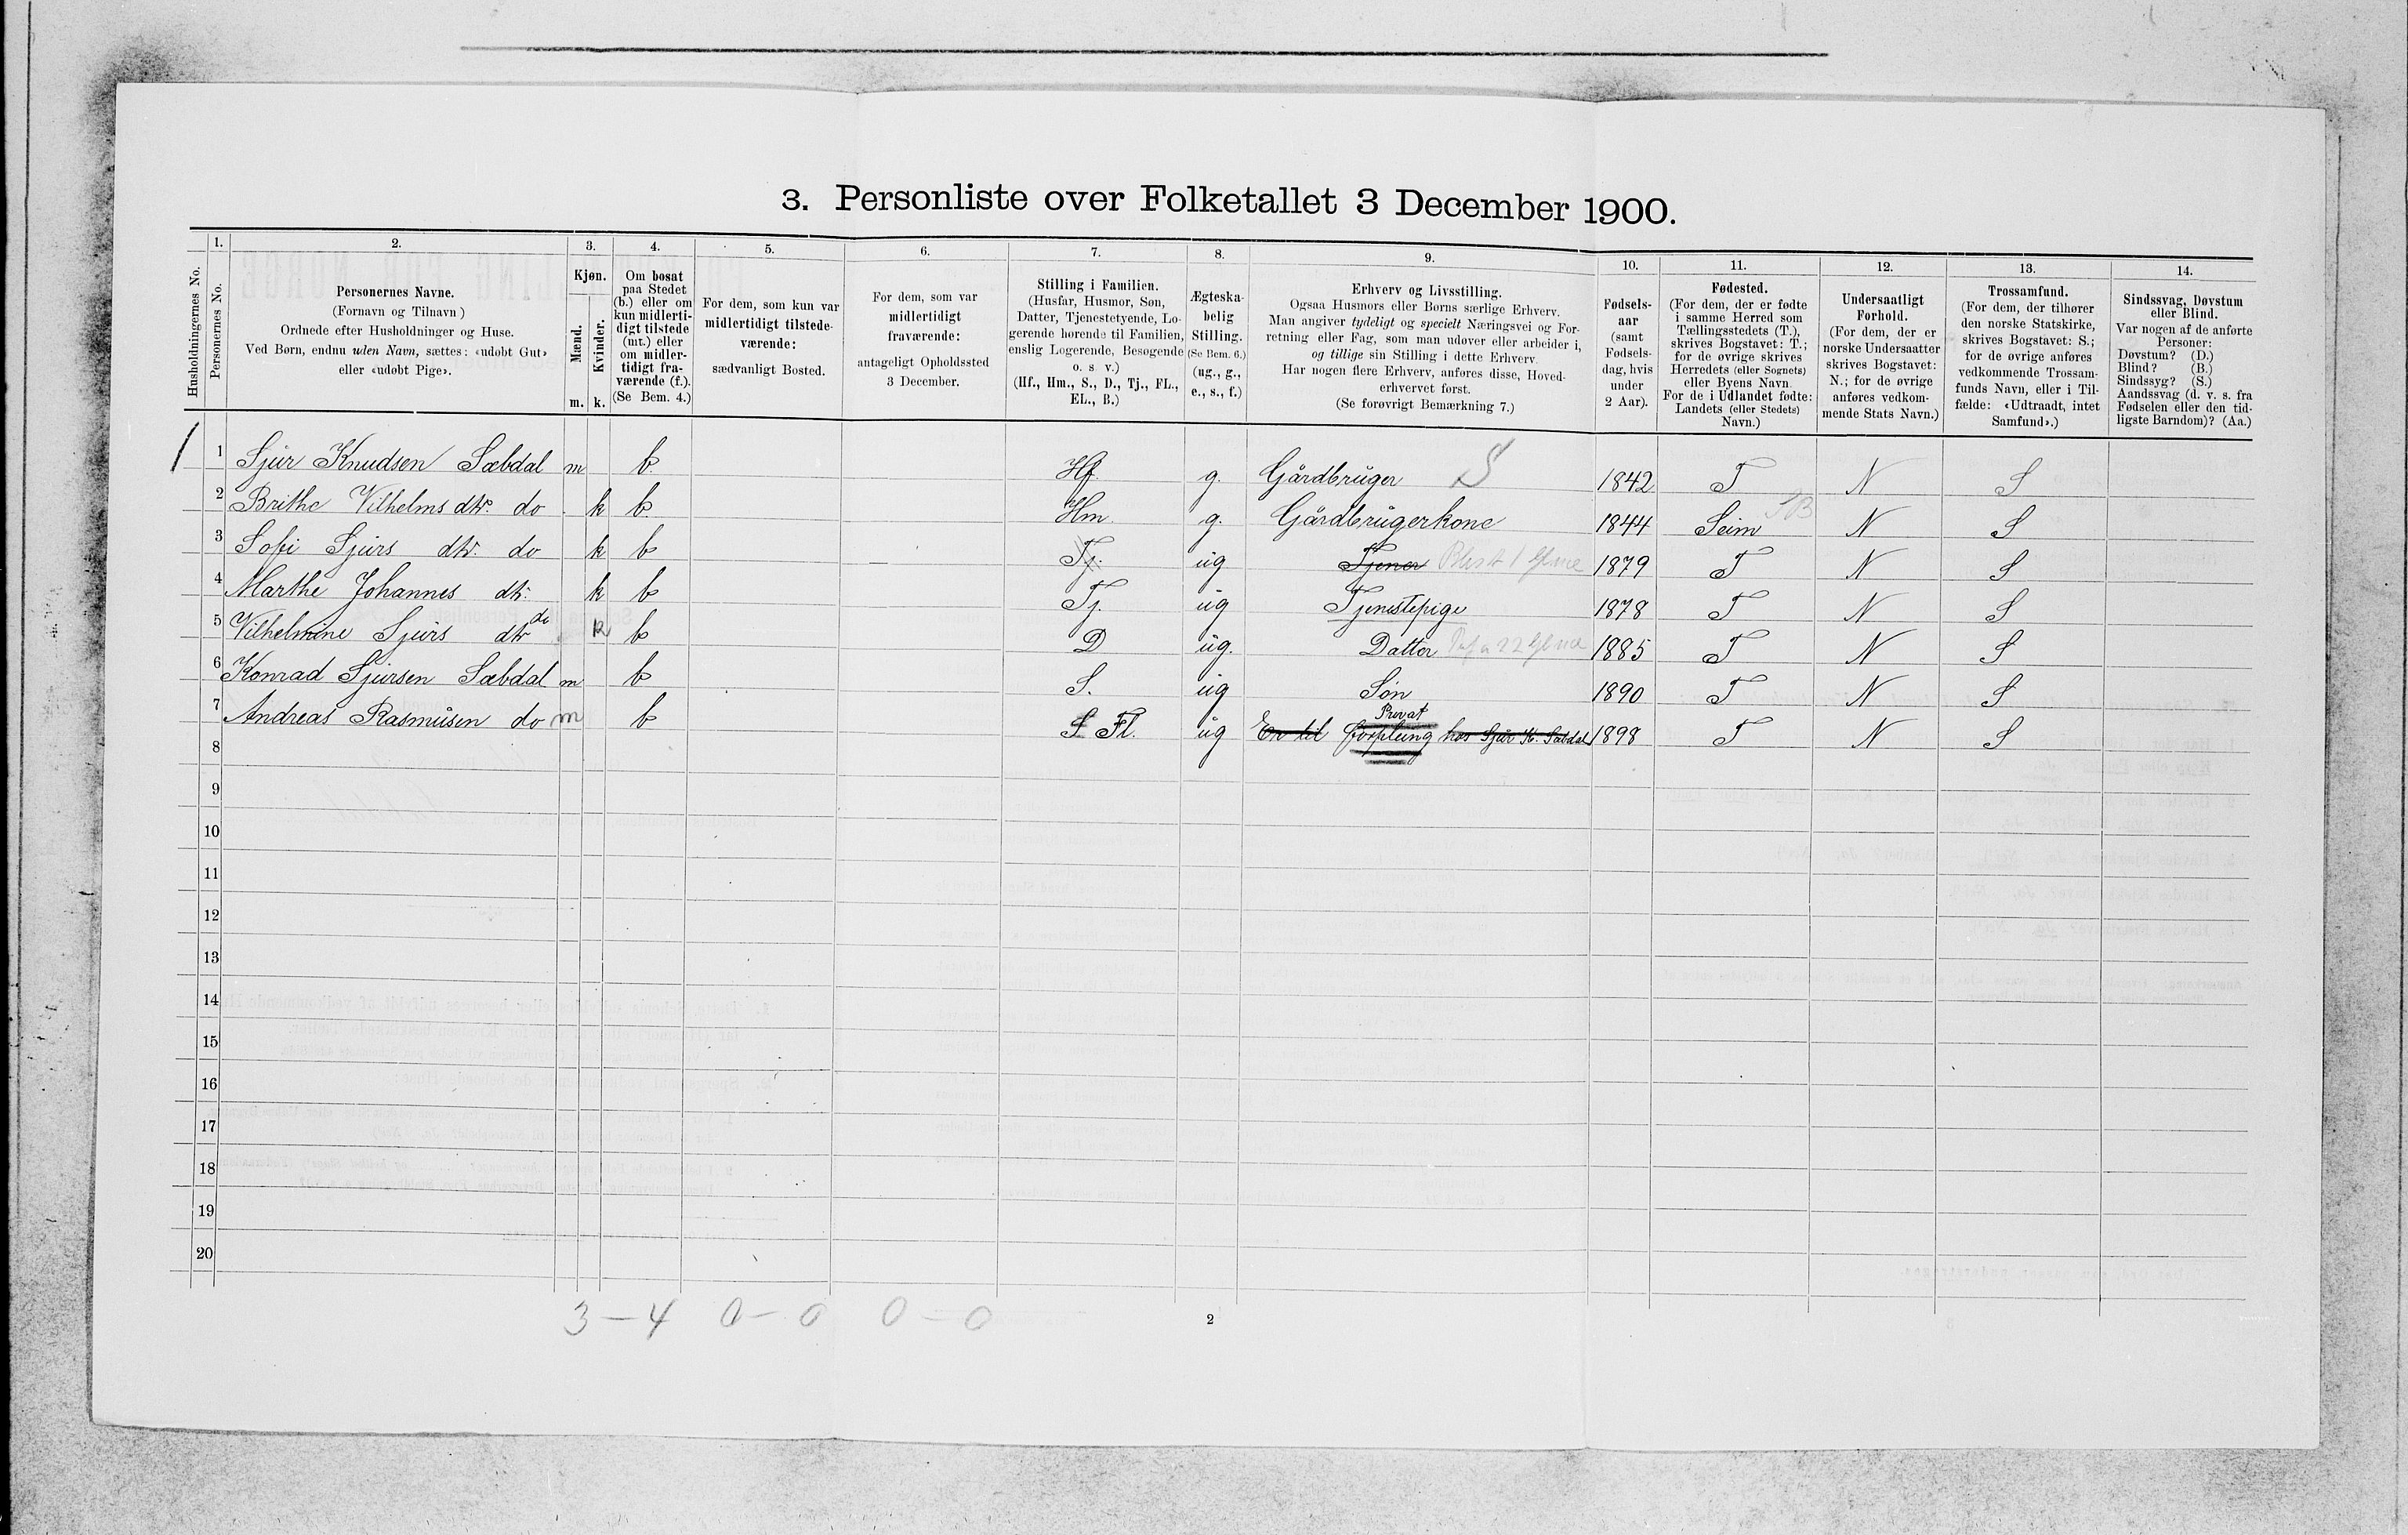 3. Personliste over Folketallet 3 December 1900.
1. 2. 3. 4. 5. 6. 7. 8. 9. 10. 11. 12. 13. 14.
Husholdningernes No.
Personernes No.
Personernes Navne.
(Fornavn og Tilnavn)
Ordnede efter Husholdninger og Huse.
Ved Børn, endnu uden Navn, sættes: «udøbt Gut»
eller «udøbt Pige».
Kjøn.
Mænd.
Kvinder.
m. k.
Om bosat
paa Stedet
(b.) eller om
kun midlerti-
digt tilstede
(mt.) eller
om midler-
tidigt fra-
værende (f.).
(Se Bem. 4.)
For dem, som kun var
midlertidigt tilstede-
værende:
sædvanligt Bosted.
For dem, som var
midlertidigt
fraværende:
antageligt Opholdssted
3 December.
Stilling i Familien.
(Husfar, Husmor, Søn,
Datter, Tjenestetyende, Lo-
gerende hørende til Familien,
enslig Logerende, Besøgende
o. s. v.)
(Hf., Hm., S., D., Tj., FL.,
EL., B.)
Ægteska-
belig
Stilling.
(Se Bem. 6.)
(ug., g.,
e., s., f.)
Erhverv og Livsstilling.
Ogsaa Husmors eller Børns særlige Erhverv.
Man angiver tydeligt og specielt Næringsvei og For-
retning eller Fag, som man udøver eller arbeider i,
og tillige sin Stilling i dette Erhverv.
Har nogen flere Erhverv, anføres disse, Hoved-
erhvervet først.
(Se forøvrigt Bemærkning 7.)
Fødsels-
aar
(samt
Fødsels-
dag, hvis
under
2 Aar).
Fødested.
(For dem, der er fødte
i samme Herred som
Tællingsstedets (T.),
skrives Bogstavet: T.;
for de øvrige skrives
Herredets (eller Sognets)
eller Byens Navn.
For de i Udlandet fødte:
Landets (eller Stedets)
Navn.)
Undersaatligt
Forhold.
(For dem, der er
norske Undersaatter
skrives Bogstavet:
N.; for de øvrige
anføres vedkom-
mende Stats Navn.)
Trossamfund.
(For dem, der tilhører
den norske Statskirke,
skrives Bogstavet: S.;
for de øvrige anføres
vedkommende Trossam-
funds Navn, eller i Til-
fælde: «Udtraadt, intet
Samfund».)
Sindssvag, Døvstum
eller Blind.
Var nogen af de anførte
Personer:
Døvstum? (D.)
Blind? (B.)
Sindssyg? (S.)
Aandssvag (d. v. s. fra
Fødselen eller den tid-
ligste Barndom)? (Aa.)
1 1 Sjur Knudsen Sæbdal m b Hf. g. Gårdbruger S 1842 T N S
2 Brithe Vilhelms dtr. do k b Hm. g. Gårdbrugerkone 1844 Seim N S
3 Sofi Sjurs dtr. do k b Tj. ug Tjener 1879 T N S
4 Marthe Johannes dtr. k b Tj. ug Tjenestepige 1878 T N S
5 Vilhelmine Sjurs dtr do k b D ug. Datter 1885 T N S
6 Konrad Sjursen Sæbdal m b S. ug Søn 1890 T N S
7 Andreas Rasmusen do m b S Fl. ug En til Privat forpleing hos Sjur K. Sæbdal 1898 T N S
8
9
10
11
12
13
14
15
16
17
18
19
20
3 – 4 0 – 0 0 – 0
2